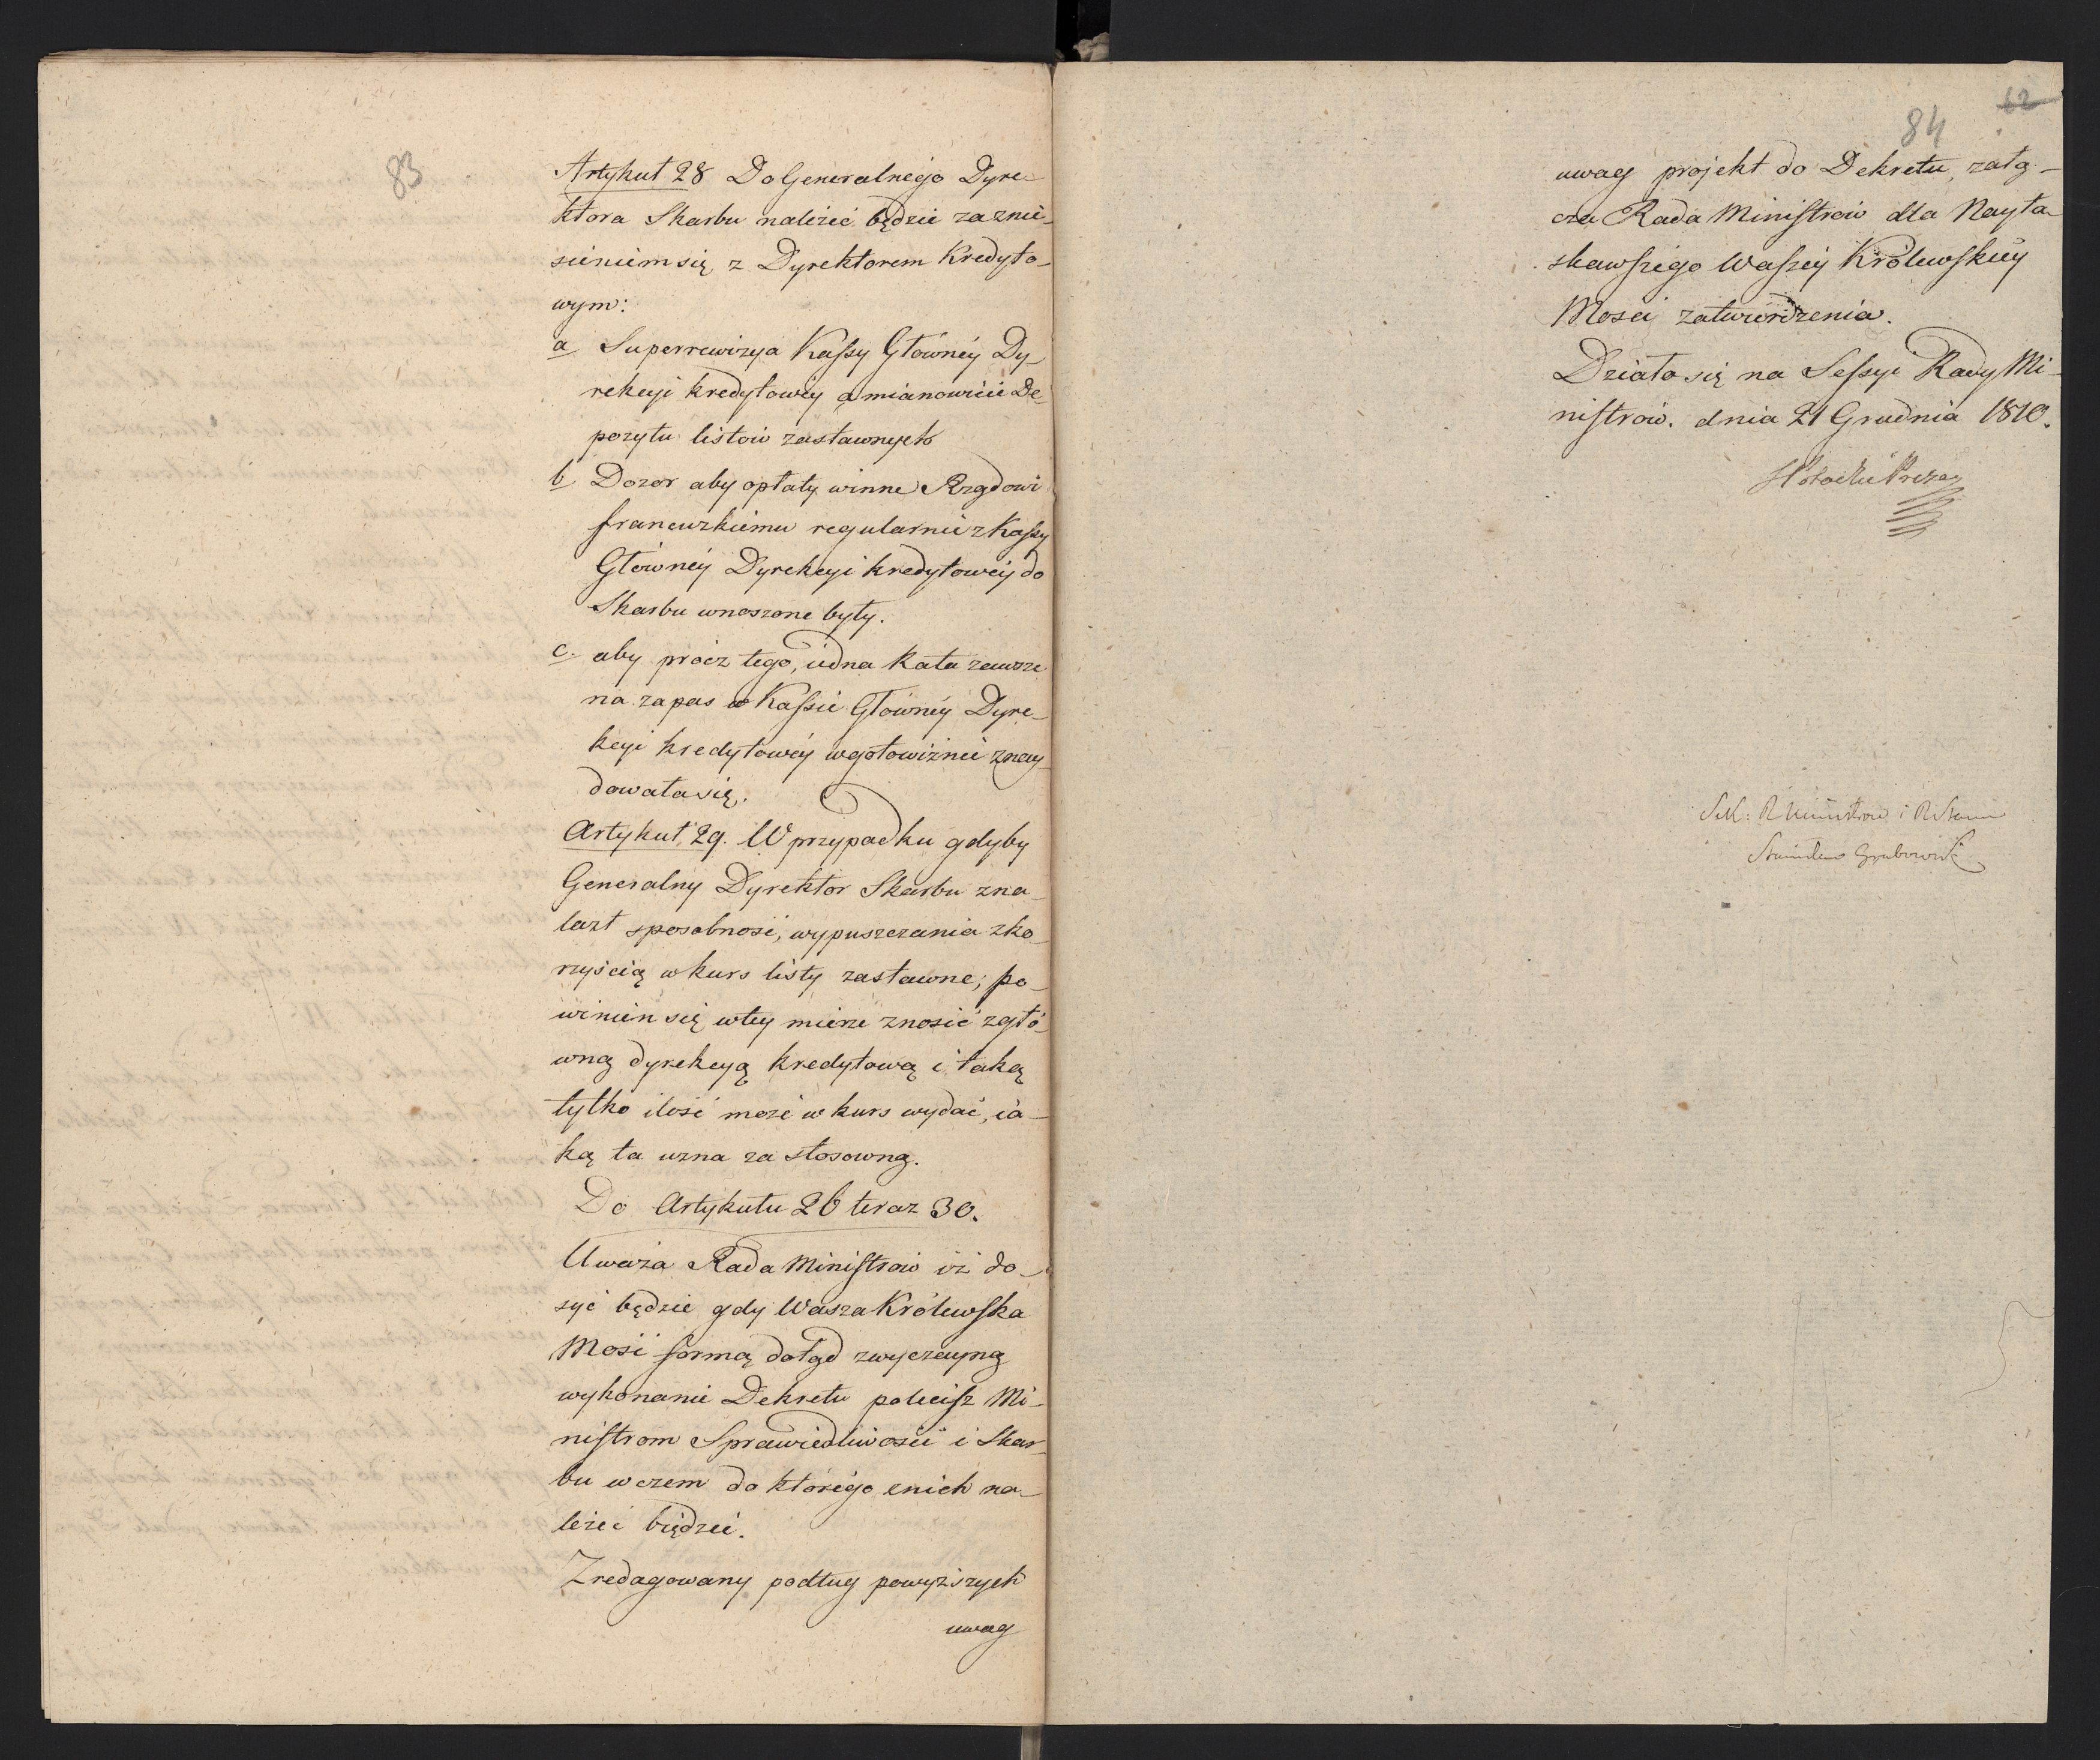 83
Artykuł 28 Do Generalnego Dyre-
ktora Skarbu należeć będzie za znie-
sieniem się z Dyrektorem Kredyto-
wym:
a Superrewizya Kassy Główney Dy-
rekcyi kredytowey a mianowicie De-
pozytu listów zastawnych
b Dozor aby opłaty winne Rządowi
francuzkiemu regularnie z Kassy
Główney Dyrekcyi kredytowey do
Skarbu wnoszone były.
c. aby prócz tego, iedna Rata zawsze
na zapas w Kassie Główney Dyre-
kcyi kredytowey w gotowiźnie znay-
dowała się.
Artykuł 29. W przypadku gdyby
Generalny Dyrektor Skarbu zna-
lazł sposobność, wypuszczania z ko-
rzyścią w kurs listy zastawne; po-
winien się w tey mierze znosić z głó-
wną dyrekcyą kredytową i taką
tylko ilość może w kurs wydać, ia-
ką ta uzna za stosowną.
Do Artykułu 26 teraz 30.
Uważa Rada Ministrów iż do-
syć będzie gdy Wasza Królewska
Mość formą dotąd zwyczayną
wykonanie Dekretu polecisz Mi-
nistrom Sprawiedliwości i Skar-
bu w czem do którego z nich na-
leżeć będzie.
Zredagowany podług powyższych
uwag
62
84
uwag projekt do Dekretu, załą-
cza Rada Ministrów dla Nayła-
skawszego Waszey Królewskiey
Mości zatwierdzenia.
Działo się na Sessyi Rady Mi-
nistrów. dnia 21 Grudnia 1810.
Potocki Prezes
Sek: R Ministrow i R Stanu
Stanisław Grabowski